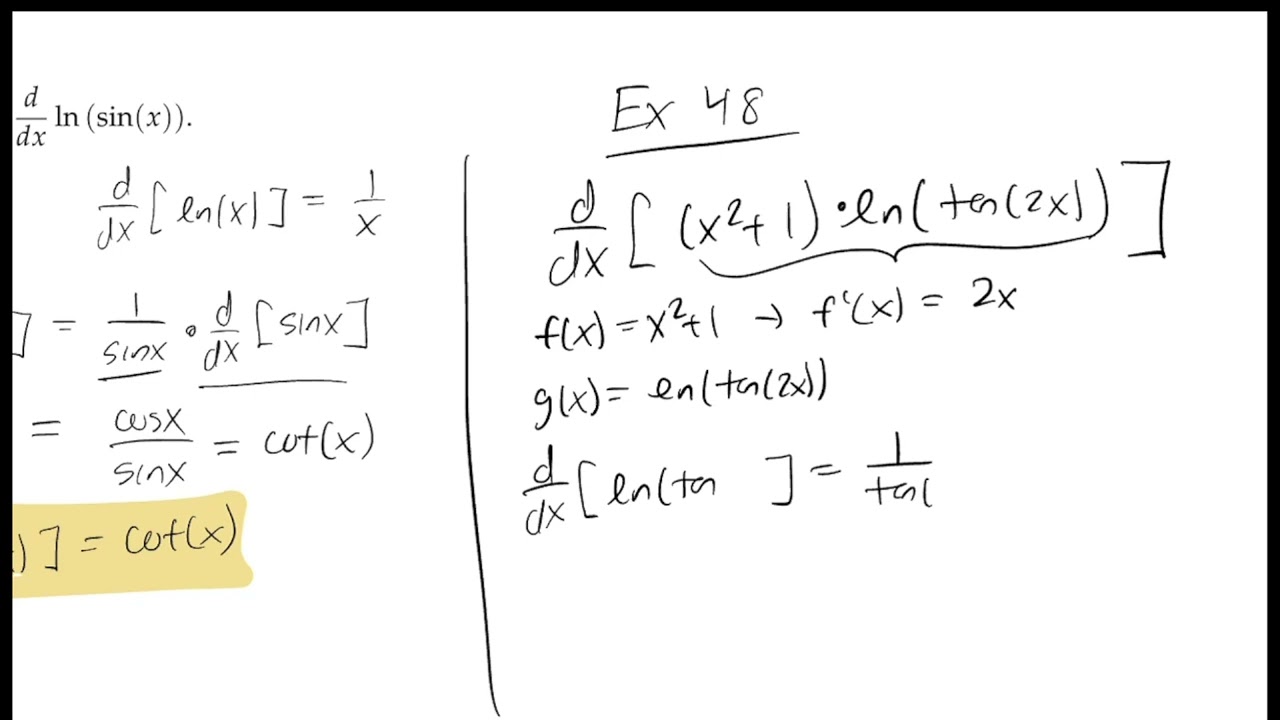 d/dx ln (sin(x)).
d/dx [ln(x)] = 1/x
] = 1/sinx · d/dx [sinx]
= cosx/sinx = cot(x)
)] = cot(x)
Ex 48
d/dx [(x²+1)·ln(tan(2x))]
f(x) = x²+1 → f'(x) = 2x
g(x) = ln(tan(2x))
d/dx [ln(tan ] = 1/tan(